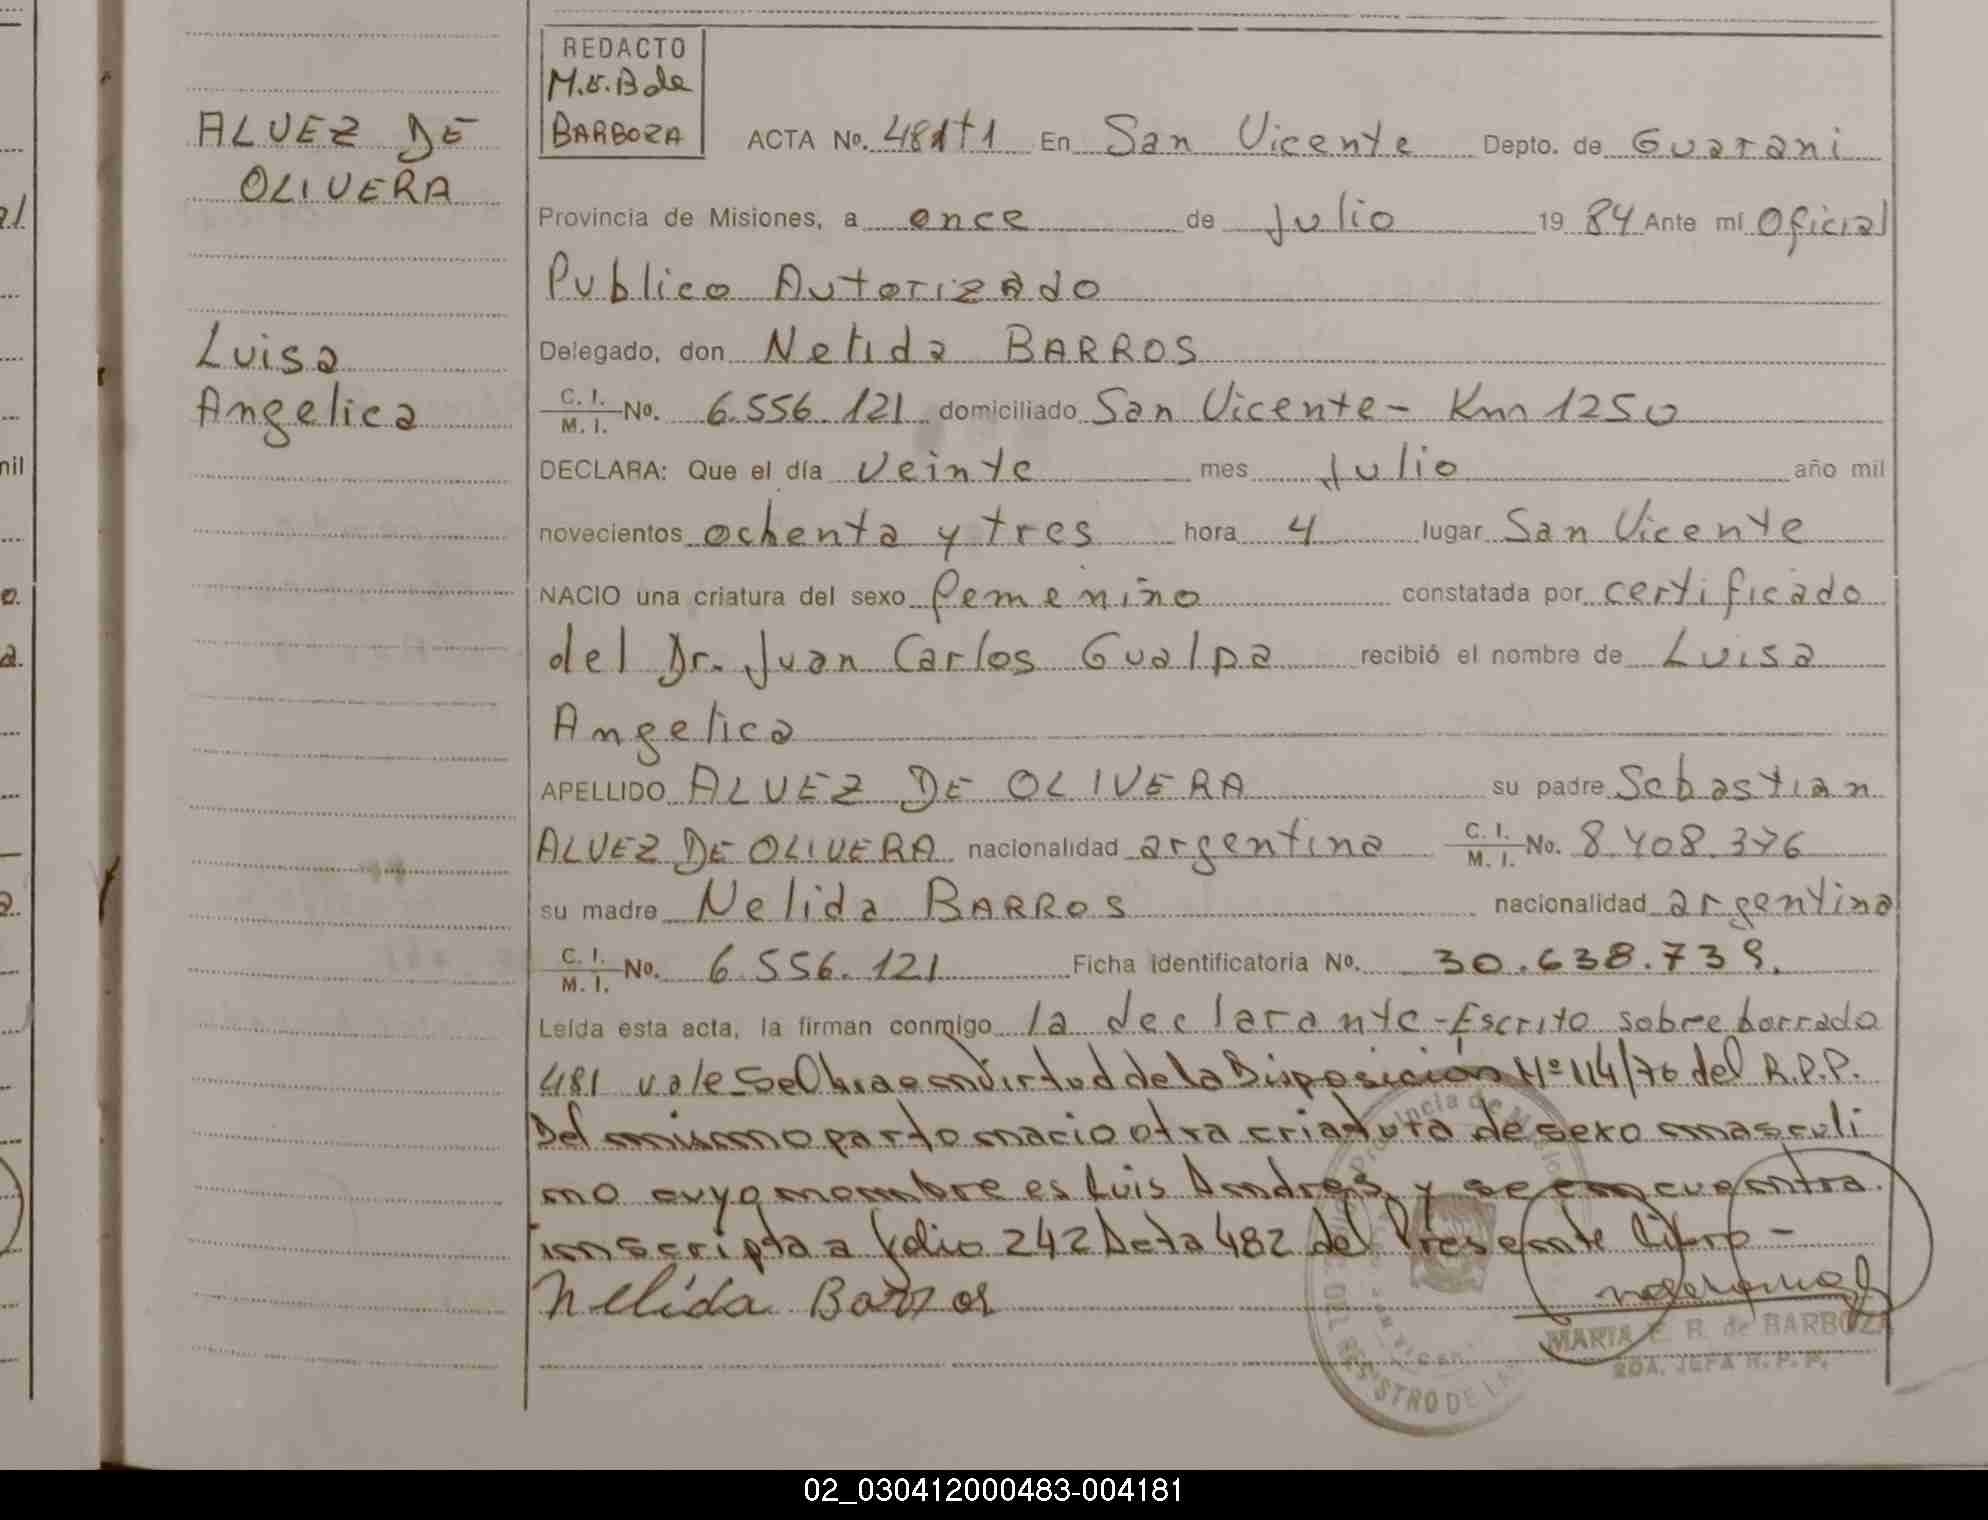 REDACTO
M.E.B de
BARBOZA
ALVEZ DE
OLIVERA
Luisa
Angelica
ACTA No. 481 t 1 En San Vicente Depto. de Guarani
Provincia de Misiones, a once de Julio 19 84 Ante mí Oficial
Publico Autorizado
Delegado, don Nelida BARROS
C. I. / M. I. No. 6.556.121 domiciliado San Vicente - Km 1250
DECLARA: Que el día veinte mes Julio año mil
novecientos ochenta y tres hora 4 lugar San Vicente
NACIO una criatura del sexo femenino constatada por certificado
del Dr. Juan Carlos Gualpa recibió el nombre de Luisa
Angelica
APELLIDO ALVEZ DE OLIVERA su padre Sebastian
ALVEZ DE OLIVERA nacionalidad argentina C. I. / M. I. No. 8.408.376
su madre Nelida BARROS nacionalidad argentina
C. I. / M. I. No. 6.556.121 Ficha Identificatoria No. 30.638.739.
Leída esta acta, la firman conmigo la declarante - Escrito sobre borrado
481 vale Se Obra en Virtud de la Disposición Nº 114/76 del R.P.P.
Del mismo parto nacio otra criatura de sexo masculi
no cuyo nombre es Luis Andres y se encuentra
inscripta a folio 242 Acta 482 del Presente libro -
Nélida Barros
MARIA E. B. de BARBOZA
2DA. JEFA R. P. P.
Provincia de Misiones
REGISTRO DE LA
02_030412000483-004181